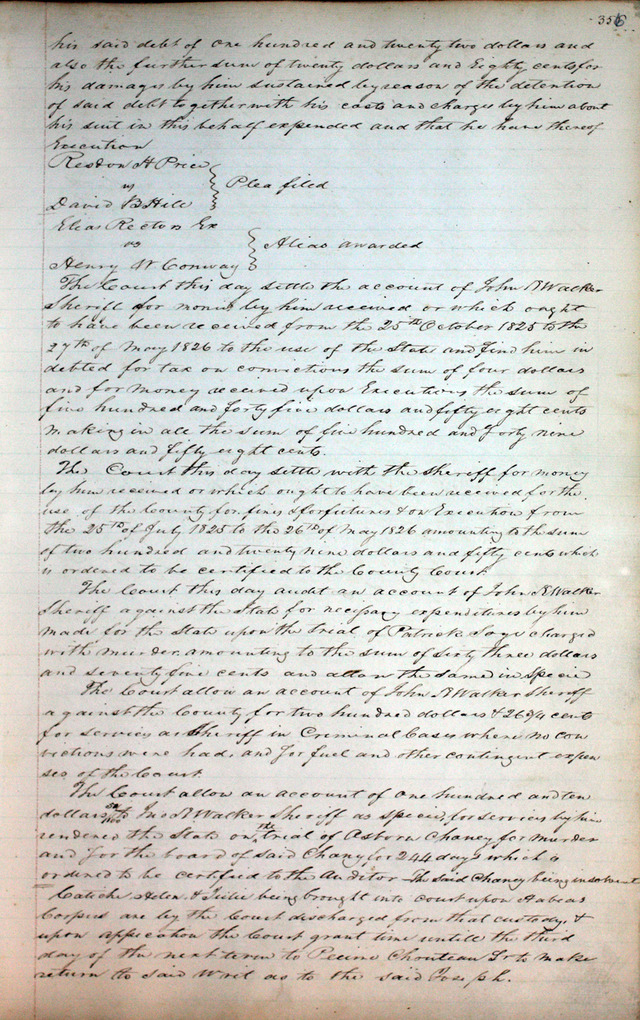 356
his said debt of one hundred and twenty two dollars and
also the further sum of twenty dollars and Eighty cents for
his damages by him sustained by reason of the detention
of said debt together with his costs and charges by him about
his suit in this behalf expended and that he have thereof
Execution
Reston H Price
vs
David B Hill
Plea filed
Elias Rectors Ex
vs
Henry W Conway
Alias awarded
The Court this day settle the account of John R Walker
Sheriff for money by him received or which ought
to have been received from the 25th October 1825 to the
27th of May 1826 to the use of the State and find him in
debted for tax on convictions the sum of four dollars
and for money received upon Executions the sum of
five hundred and forty five dollars and fifty eight cents
making in all the sum of five hundred and forty nine
dollars and fifty eight cents.
The Court this day settle with the Sheriff for money
by him received or which ought to have been received for the
use of the County for fines & forfutures & on Execution from
the 25th of July 1825 to the 26th of May 1826 amounting to the sum
of two hundred and twenty nine dollars and fifty cents which
is ordered to be certified to the County Court
The Court this day audit an account of John R Walker
Sheriff against the State for necessary expenditures by him
made for the State upon the trial of Patrick charged
with murder amounting to the sum of sixty three dollars
and seventy five cents and allow the same in Specie
The Court allow an account of John R Walker Sheriff
against the County for two hundred dollars & 26 3/4 cents
for services as Sheriff in Criminal Cases where no con
victions were had, and for fuel and other contingent expen
ses of the Court.
The Court allow an account of one hundred and ten
dollars to Jno R Walker Sheriff as specie, for services by him
rendered the State on the trial of Osborn Chaney for murder
and for the board of said Chany for 244 days which is
ordered to be certified to the Auditor - The said Chaney being insolvent
Catiche Helen & Julie being brought into Court upon Habeas
Corpus are by the Court discharged from that custody, &
upon application the Court grant time untill the third
day of the next term to Pierre Chouteau Sr to make
return to said Writ as to the said Joseph.